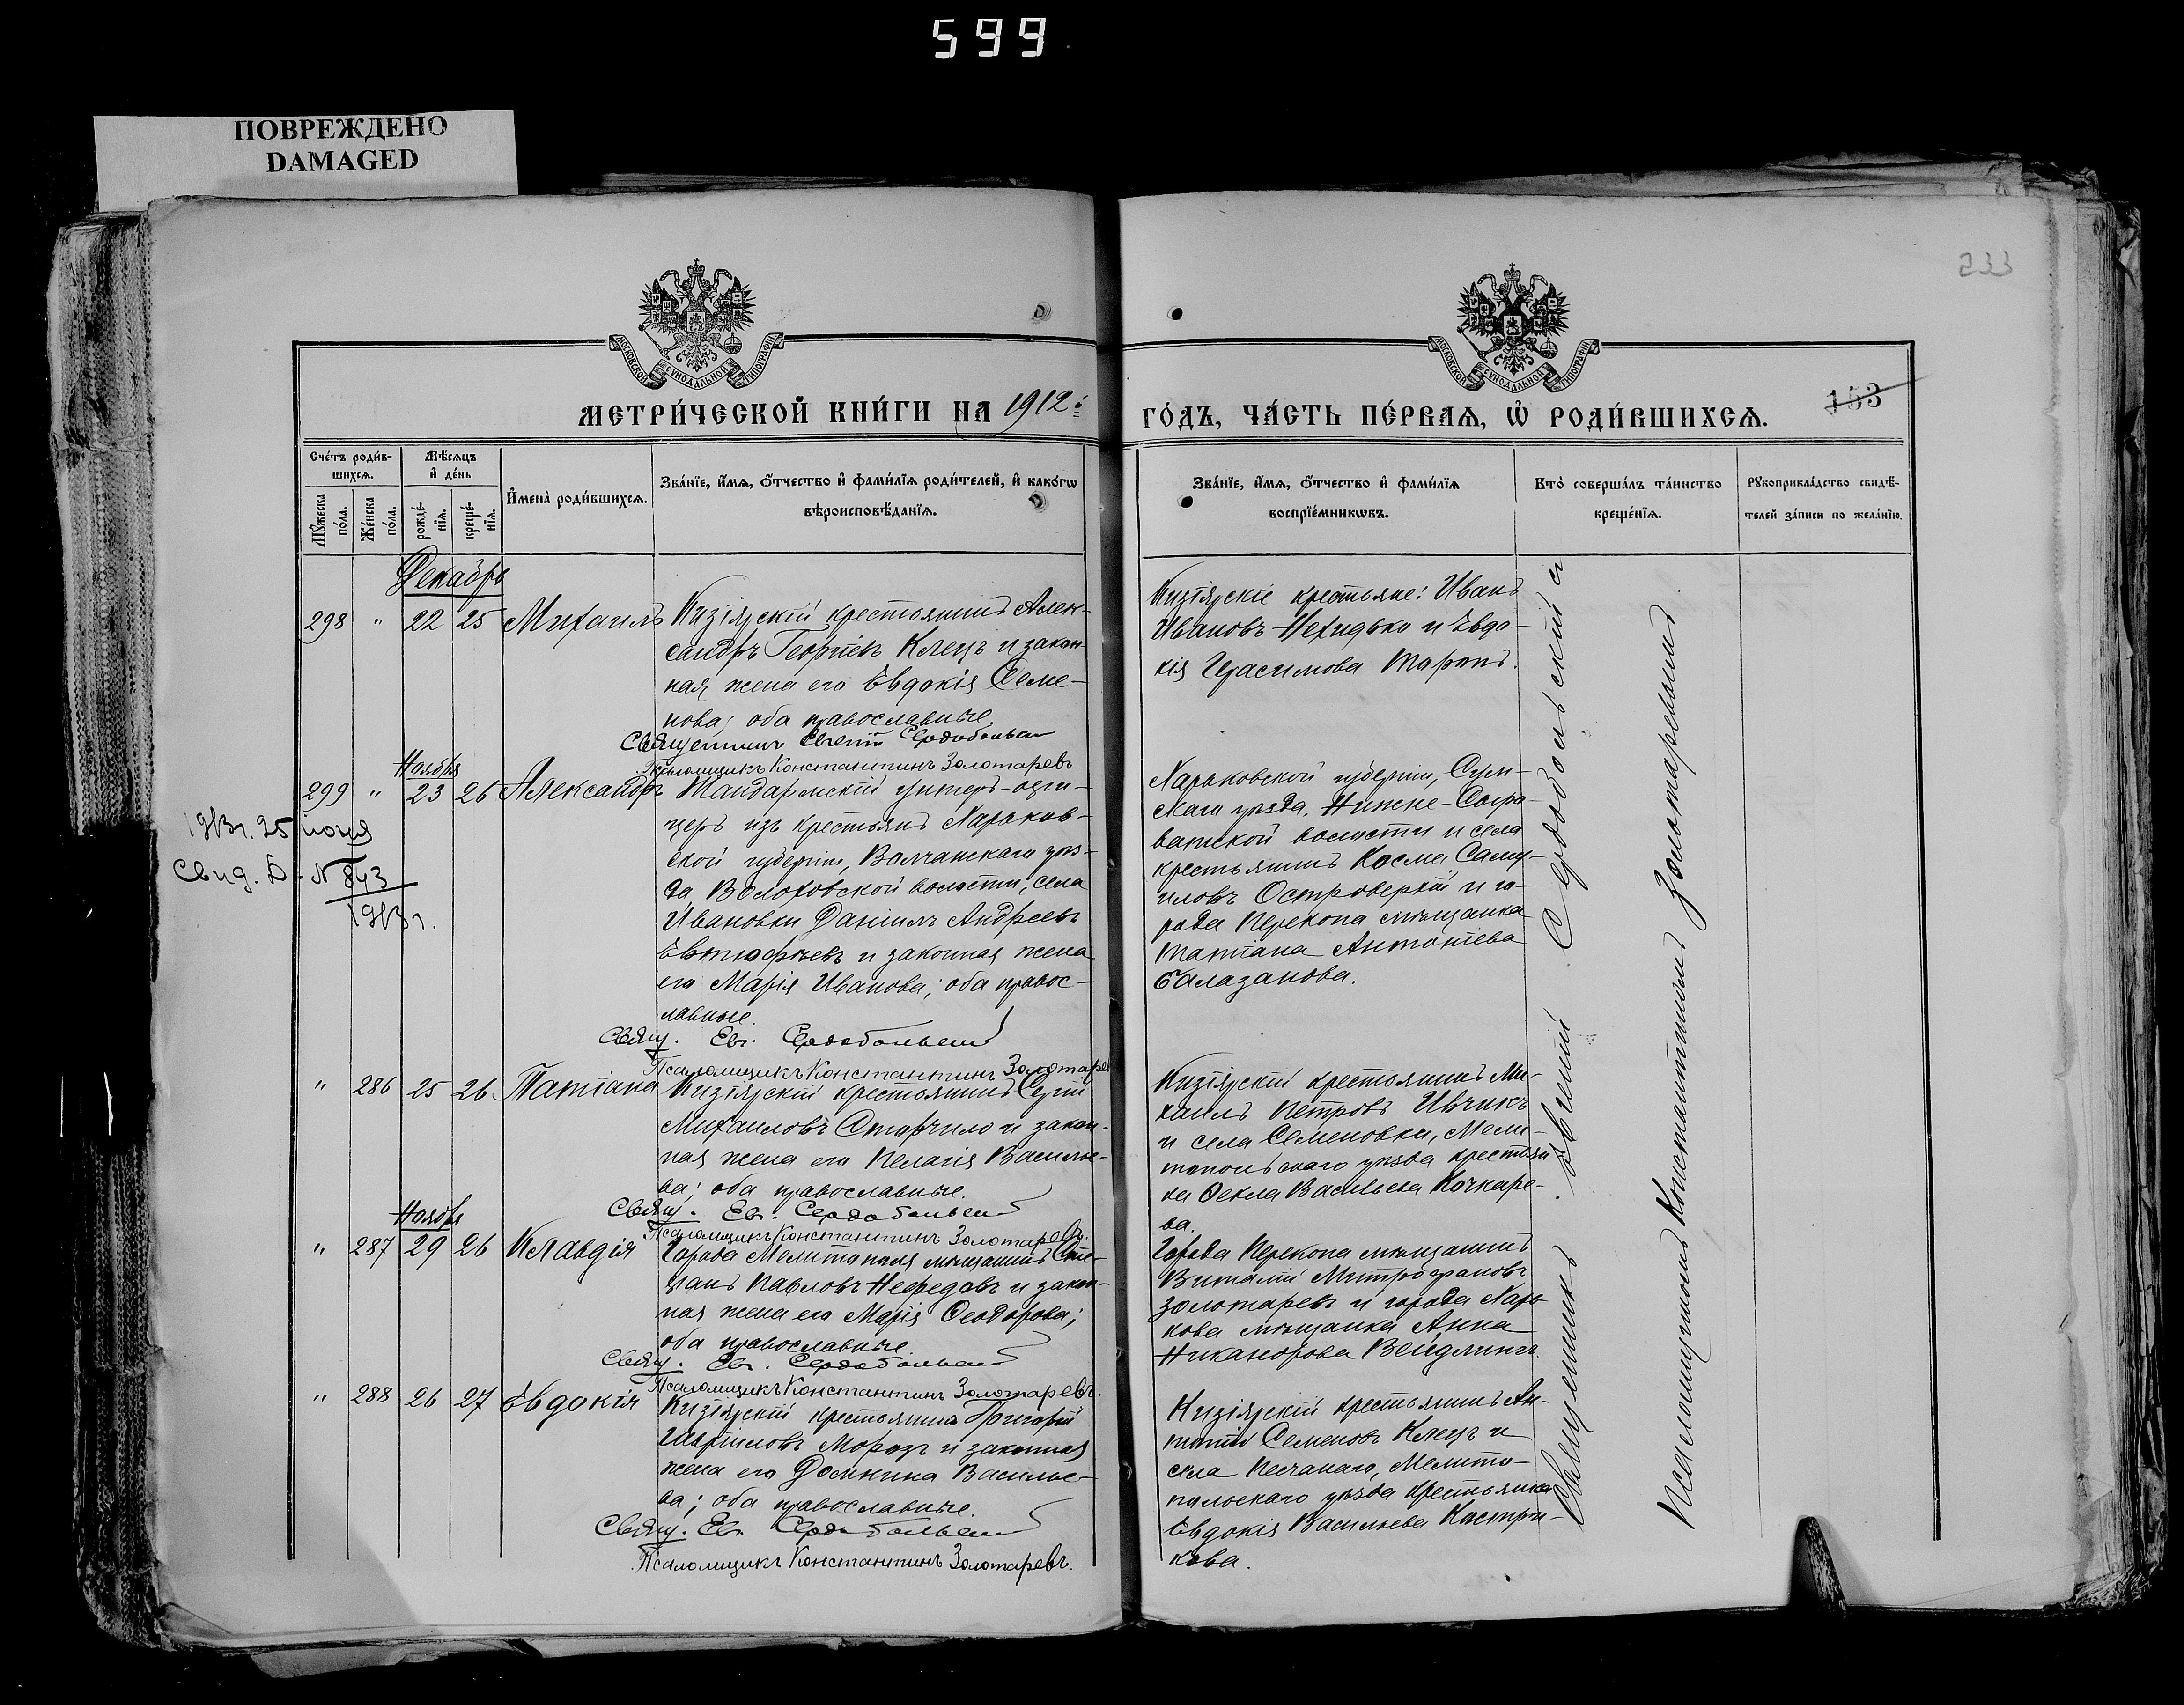 599
ПОВРЕЖДЕНО
DAMAGED
233
МОСКОВСКОЙ СѴНОДАЛЬНОЙ ТИПОГРАФІИ
МОСКОВСКОЙ СѴНОДАЛЬНОЙ ТИПОГРАФІИ
МЕТРИ́ЧЕСКОЙ КНИ́ГИ НА 1912 й
ГО́ДЪ, ЧА́СТЬ ПЕ́РВАѦ, Ѡ҆ РОДИ́ВШИХСѦ.
153
Сче́тъ роди́в-
шихсѧ.
Мѣ́сѧцъ
и҆ де́нь
Мꙋ́жеска
по́ла.
Же́нска
по́ла.
рожде́-
нїѧ.
креще́-
нїѧ.
И҆мена̀ роди́вшихсѧ.
Зва́нїе, и҆́мѧ, ѻ҆́тчество и҆ фами́лїѧ роди́телей, и҆ како́гѡ
вѣроисповѣ́данїѧ.
Зва́нїе, и҆́мѧ, ѻ҆́тчество и҆ фами́лїѧ
воспрїе́мникѡвъ.
Кто̀ соверша́лъ та́инство
креще́нїѧ.
Рꙋкоприкла́дство свидѣ́-
телей за́писи по жела́нїю.
Декабрь
298 " 22 25 Михаилъ Кизіярскій крестьянинъ Алек-
сандръ Георгіевъ Клецъ и закон-
ная жена его Евдокія Семе-
нова; оба православные.
Священникъ Евгеній Сердобольскій
Псаломщикъ Константинъ Золотаревъ
Кизіярскіе крестьяне: Иванъ
Ивановъ Нехидько и Евдо-
кія Герасимова Таранъ.
Ноября
299 " 23 26 Александръ Жандармскій унтеръ-офи-
церъ изъ крестьянъ Харьков-
ской губерніи, Волчанскаго уѣз-
да Волоховской волости, села
Ивановки Даніилъ Андреевъ
Евтюфіевъ и законная жена
его Марія Иванова; оба правос-
лавные.
Свящ. Евг. Сердобольскій
Псаломщикъ Константинъ Золотарев
1913 г. 25 іюня
Свид. № 843
1913 г.
Харьковской губерніи, Сум-
скаго уѣзда, Нижне-Сыро-
ватской волости и села
крестьянинъ Косма Саму-
иловъ Островерхій и го-
рода Перекопа мѣщанка
Татіана Антоніева
Балазанова.
" 286 25 26 Татіана Кизіярскій крестьянинъ Сергій
Михаиловъ Сторчило и закон-
ная жена его Пелагія Василье-
ва; оба православные.
Свящ. Евг. Сердобольскій
Псаломщикъ Константинъ Золотаревъ.
Кизіярскій крестьянинъ Ми-
хаилъ Петровъ Ивчикъ
и села Семеновки, Мели-
топольскаго уѣзда крестьян
ка Ѳекла Васильева Кочкаре-
ва.
Ноября
" 287 29 26 Клавдія Города Мелитополя мѣщанинъ Сте-
фанъ Павловъ Нефедовъ и закон-
ная жена его Марія Ѳеодорова;
оба православные.
Свящ. Евг. Сердобольскій
Псаломщикъ Константинъ Золотаревъ.
Города Перекопа мѣщанинъ
Виталій Митрофановъ
Золотаревъ и города Харь-
кова мѣщанка Анна
Никанорова Вейдлингъ.
" 288 26 27 Евдокія Кизіярскій крестьянинъ Григорій
Гавріиловъ Морозъ и законная
жена его Домникія Василье-
ва; оба православные.
Свящ. Евг. Сердобольскій
Псаломщикъ Константинъ Золотаревъ.
Кизіярскій крестьянинъ Ан-
тоній Семеновъ Клецъ и
села Песчанаго, Мелито-
польскаго уѣзда крестьянка
Евдокія Васильева Кастри-
кова.
Священникъ Евгеній Сердобольскій съ
Псаломщикомъ Константиномъ Золотаревымъ